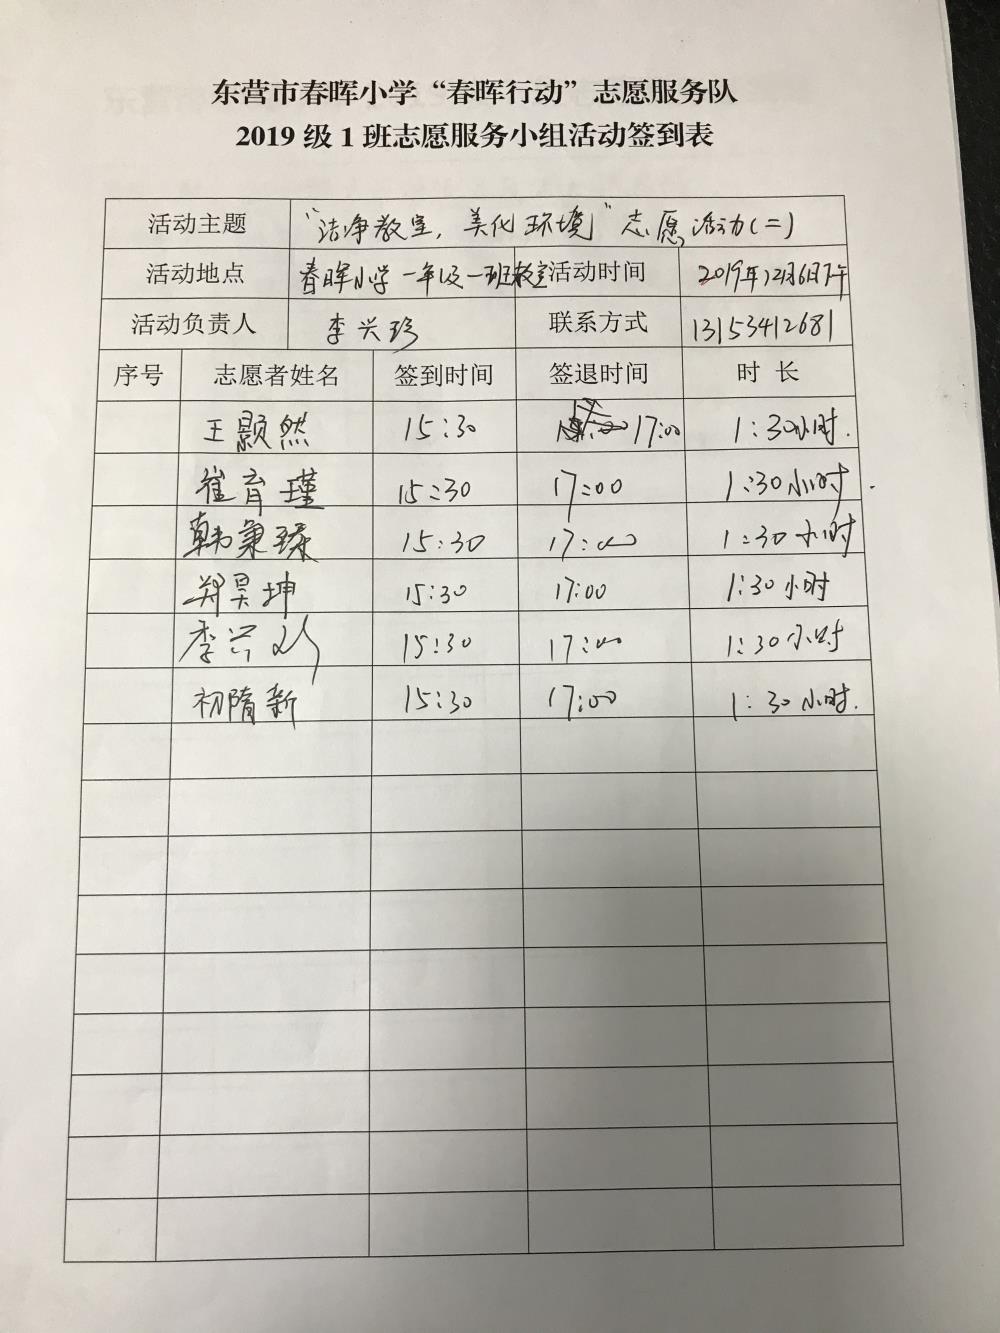 东营市春晖小学“春晖行动”志愿服务队
2019 级 1 班志愿服务小组活动签到表
活动主题 “洁净教室，美化环境”志愿活动(二)
活动地点 春晖小学一年级一班教室 活动时间 2019年12月6日下午
活动负责人 李兴珍 联系方式 13153412681
序号 志愿者姓名 签到时间 签退时间 时 长
王颢然 15:30 17:00 1:30小时.
崔育瑾 15:30 17:00 1:30小时.
韩秉臻 15:30 17:00 1:30小时
郑昊坤 15:30 17:00 1:30小时
李兴珍 15:30 17:00 1:30小时
初隋新 15:30 17:00 1:30小时.